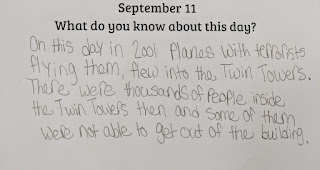 September 11
What do you know about this day?
On this day in 2001 Planes with terrorists
flying them, flew into the Twin Towers.
There were thousands of People inside
the Twin Towers then and some of them
were not able to get out of the building.